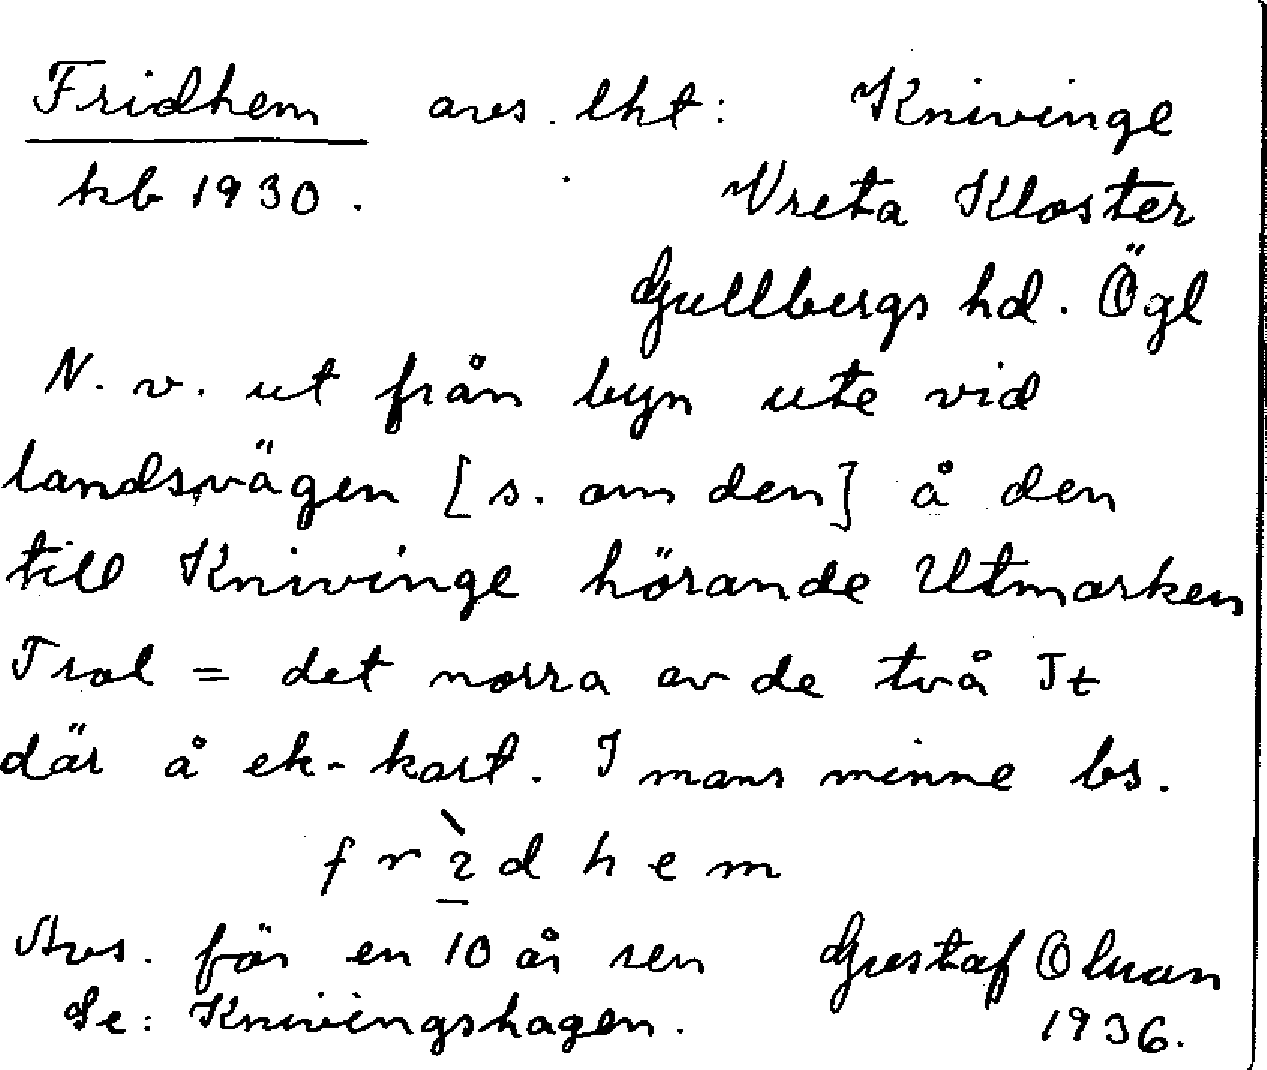 Fridhem avs. lht: Knivinge
kb 1930. Vreta Kloster
Gullbergs hd. Ögl
N. v. ut från byn ute vid
landsvägen [s. om den] å den
till Knivinge hörande Utmarken
Trol = det norra av de två Jt
där å ek-kart. I mans minne bs.
f r ì d h e m
Avs. för en 10 år sen Gustaf Olman
Se: Knivingshagen. 1936.